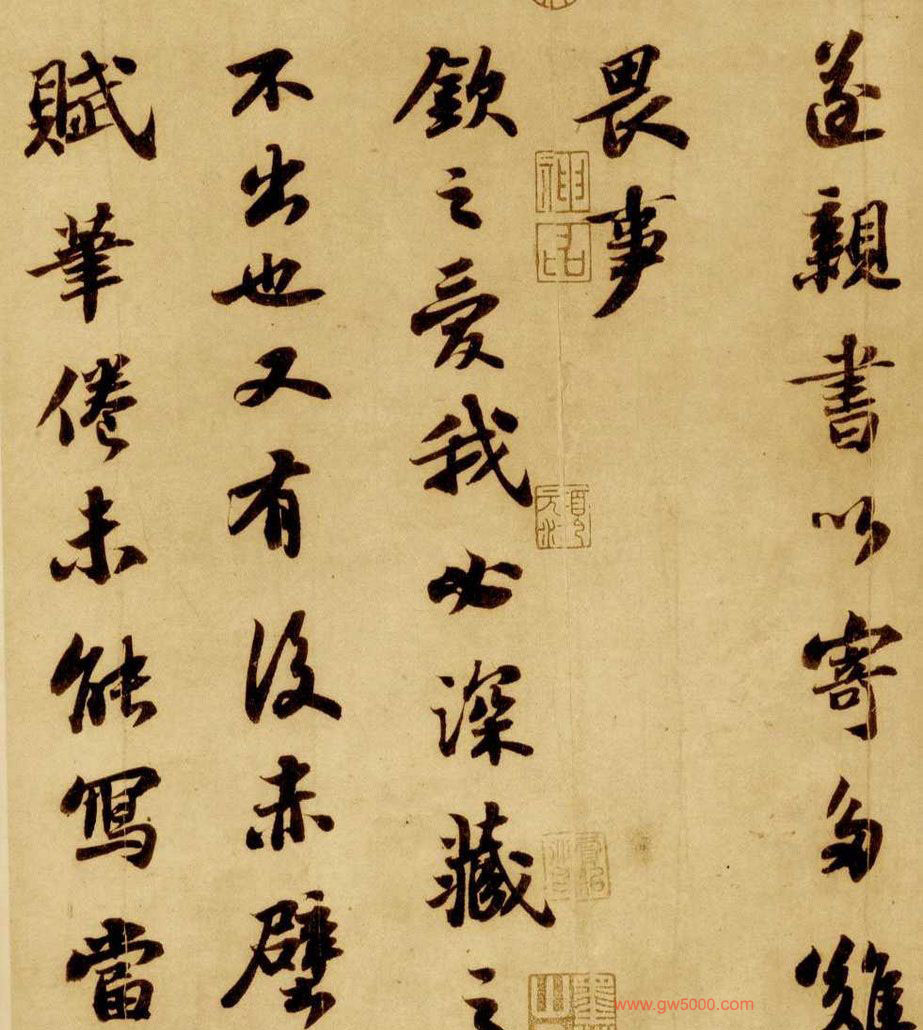 遂親書以寄多難
畏事
欽之愛我必深藏之
不出也又有後赤壁
賦筆倦未能寫當
神品
www.gw5000.com